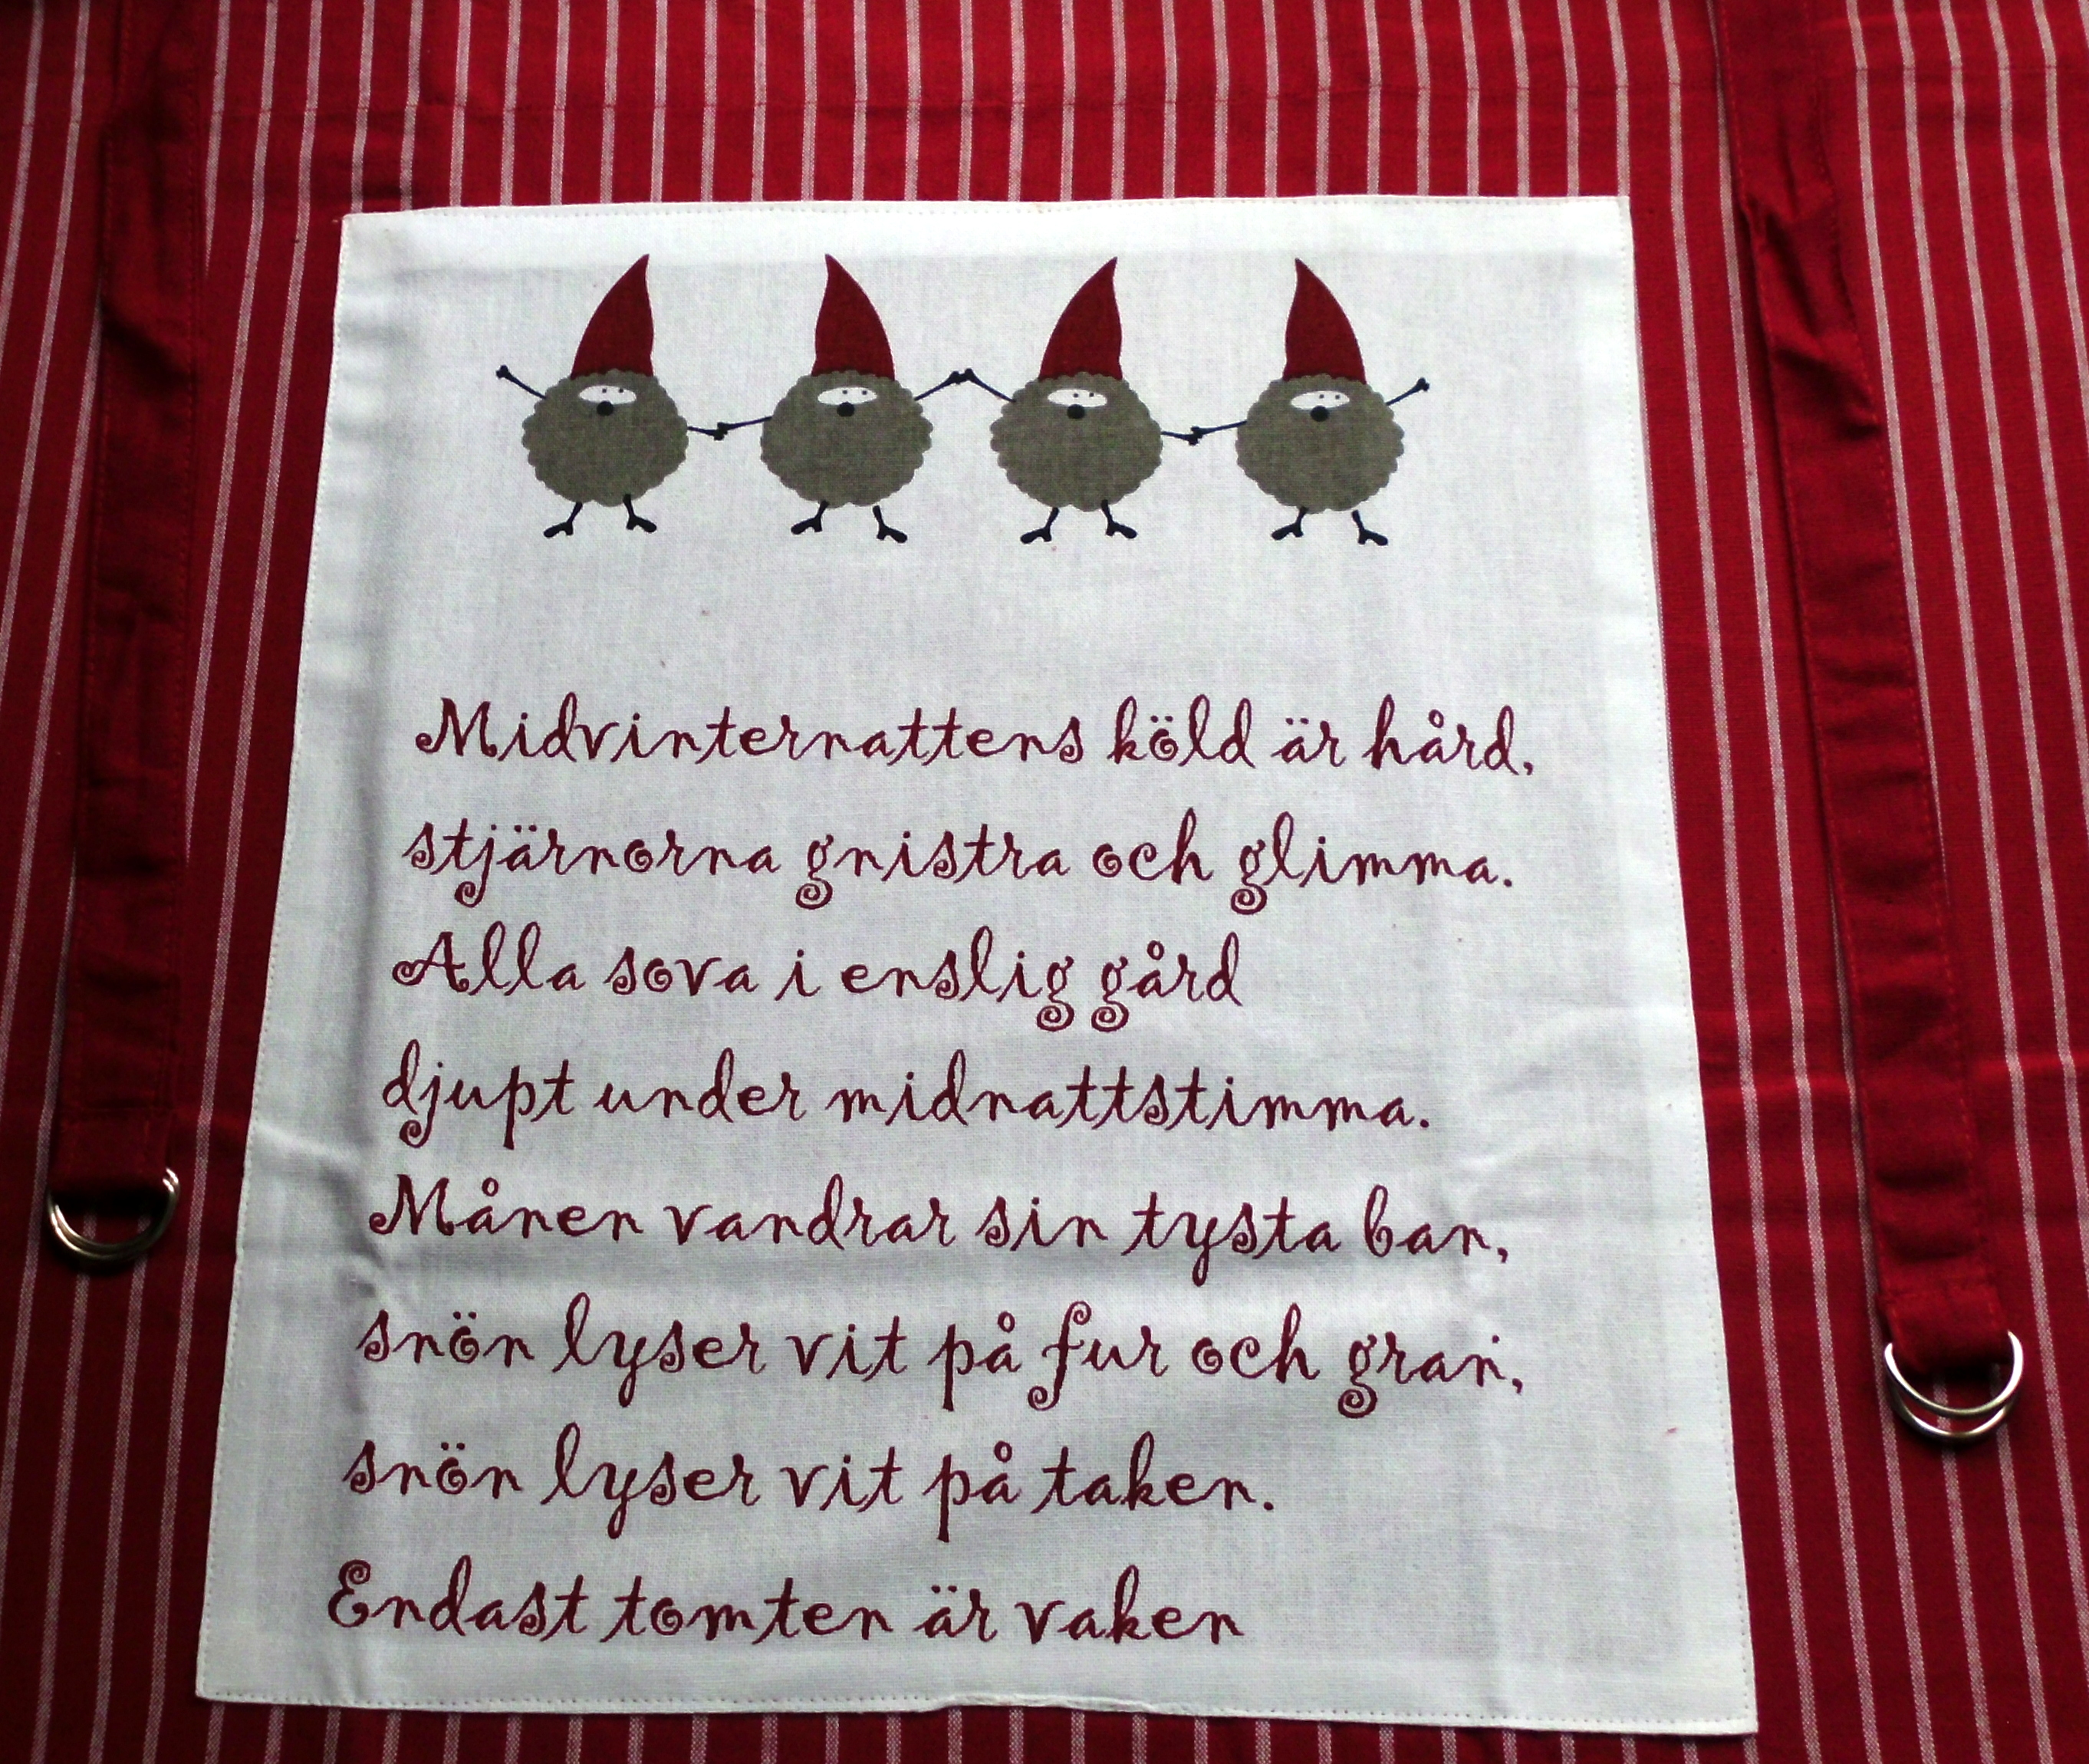 Midvinternattens köld är hård,
stjärnorna gnistra och glimma.
Alla sova i enslig gård
djupt under midnattstimma.
Månen vandrar sin tysta ban,
snön lyser vit på fur och gran,
snön lyser vit på taken.
Endast tomten är vaken